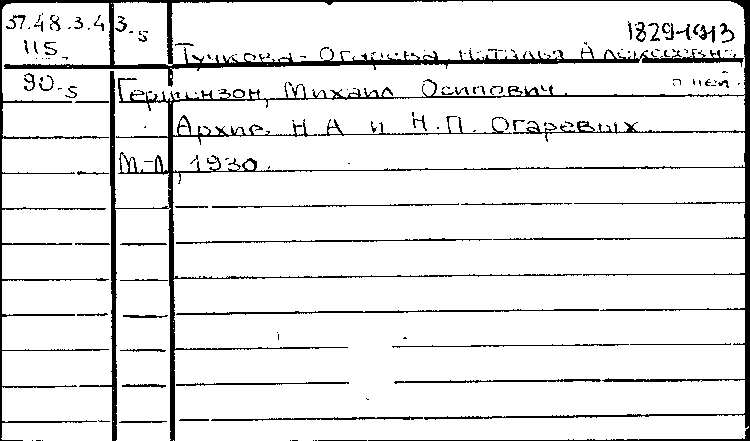 57.48.3.4 3.5 1829-1913
115. Тучкова-Огарева, Наталья Алексеевна
90.5 Гершензон, Михаил Осипович. о ней.
Архив Н.А и Н.П. Огаревых
М.-Л., 1930.